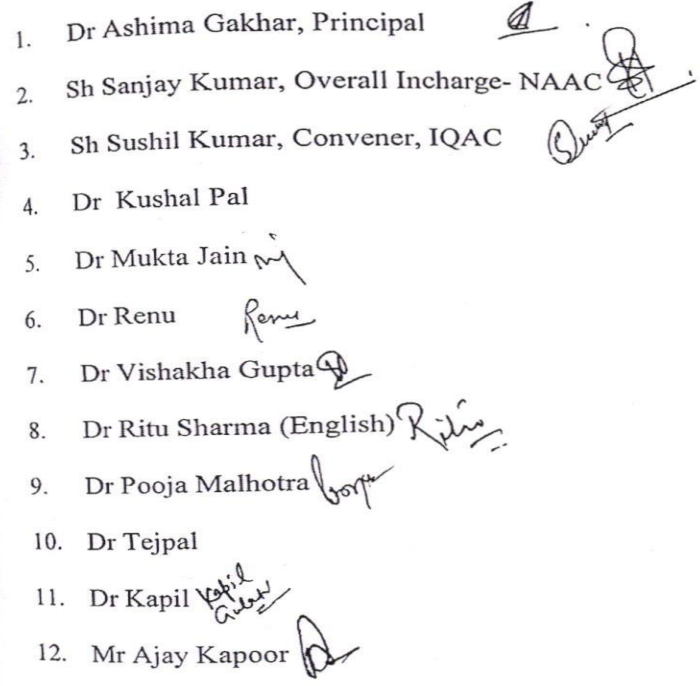 1. Dr Ashima Gakhar, Principal
2. Sh Sanjay Kumar, Overall Incharge- NAAC
3. Sh Sushil Kumar, Convener, IQAC
4. Dr Kushal Pal
5. Dr Mukta Jain
6. Dr Renu Renu
7. Dr Vishakha Gupta
8. Dr Ritu Sharma (English) Ritu
9. Dr Pooja Malhotra
10. Dr Tejpal
11. Dr Kapil Kapil
Gulati
12. Mr Ajay Kapoor